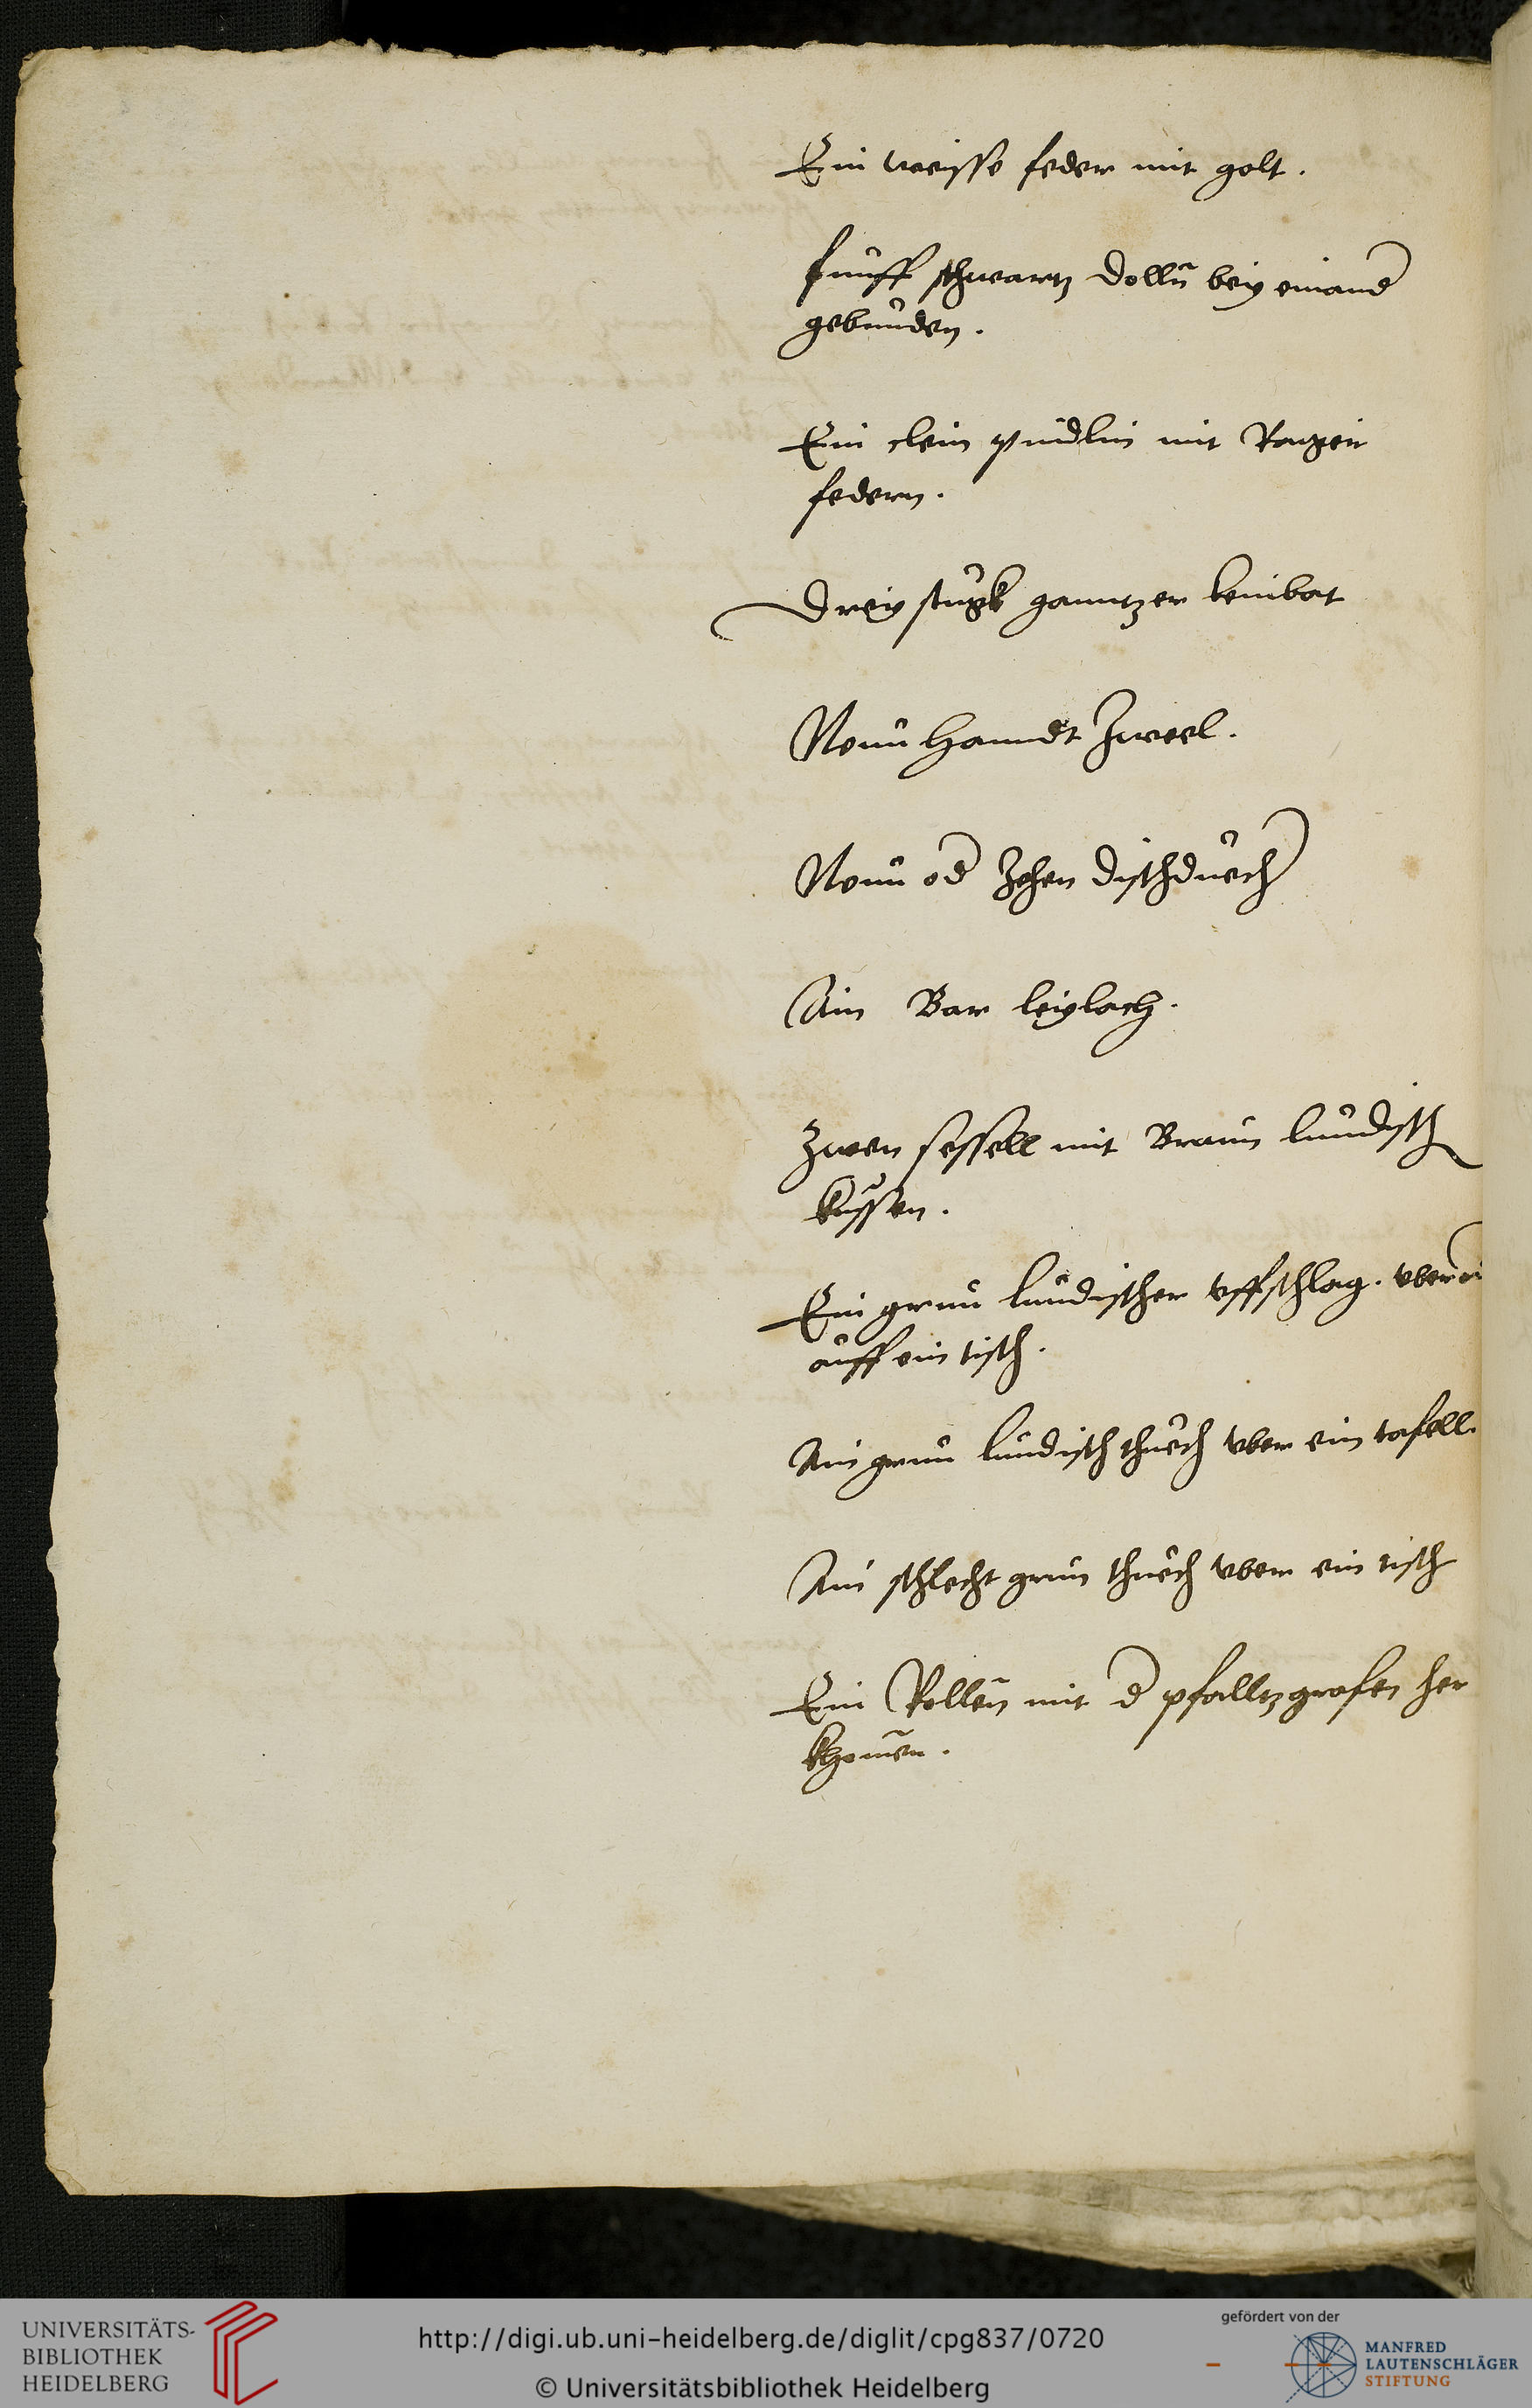 Ein weisse feder mit golt.
funff schwartz dolln bey einand
gebunden.
Ein clein pündlin mit Rayger
federn.
Drey stugk ganntzer leinbat
Neun Handt Zweel.
Neun od Zehen dischduecher
Ain Bar leylach.
Zwen sessell mit Braun lundisch
kussen.
Ein grun lundischer vffschlag. vber
auff ein tisch.
Ain grun lundisch thuech vber ein tafell.
Ain schlecht grun thuech vber ein tisch
Ein Rollen mit d pfalltzgrafen her
khomen.
UNIVERSITÄTS-
BIBLIOTHEK
HEIDELBERG
http://digi.ub.uni-heidelberg.de/diglit/cpg837/0720
© Universitätsbibliothek Heidelberg
gefördert von der
MANFRED
LAUTENSCHLÄGER
STIFTUNG